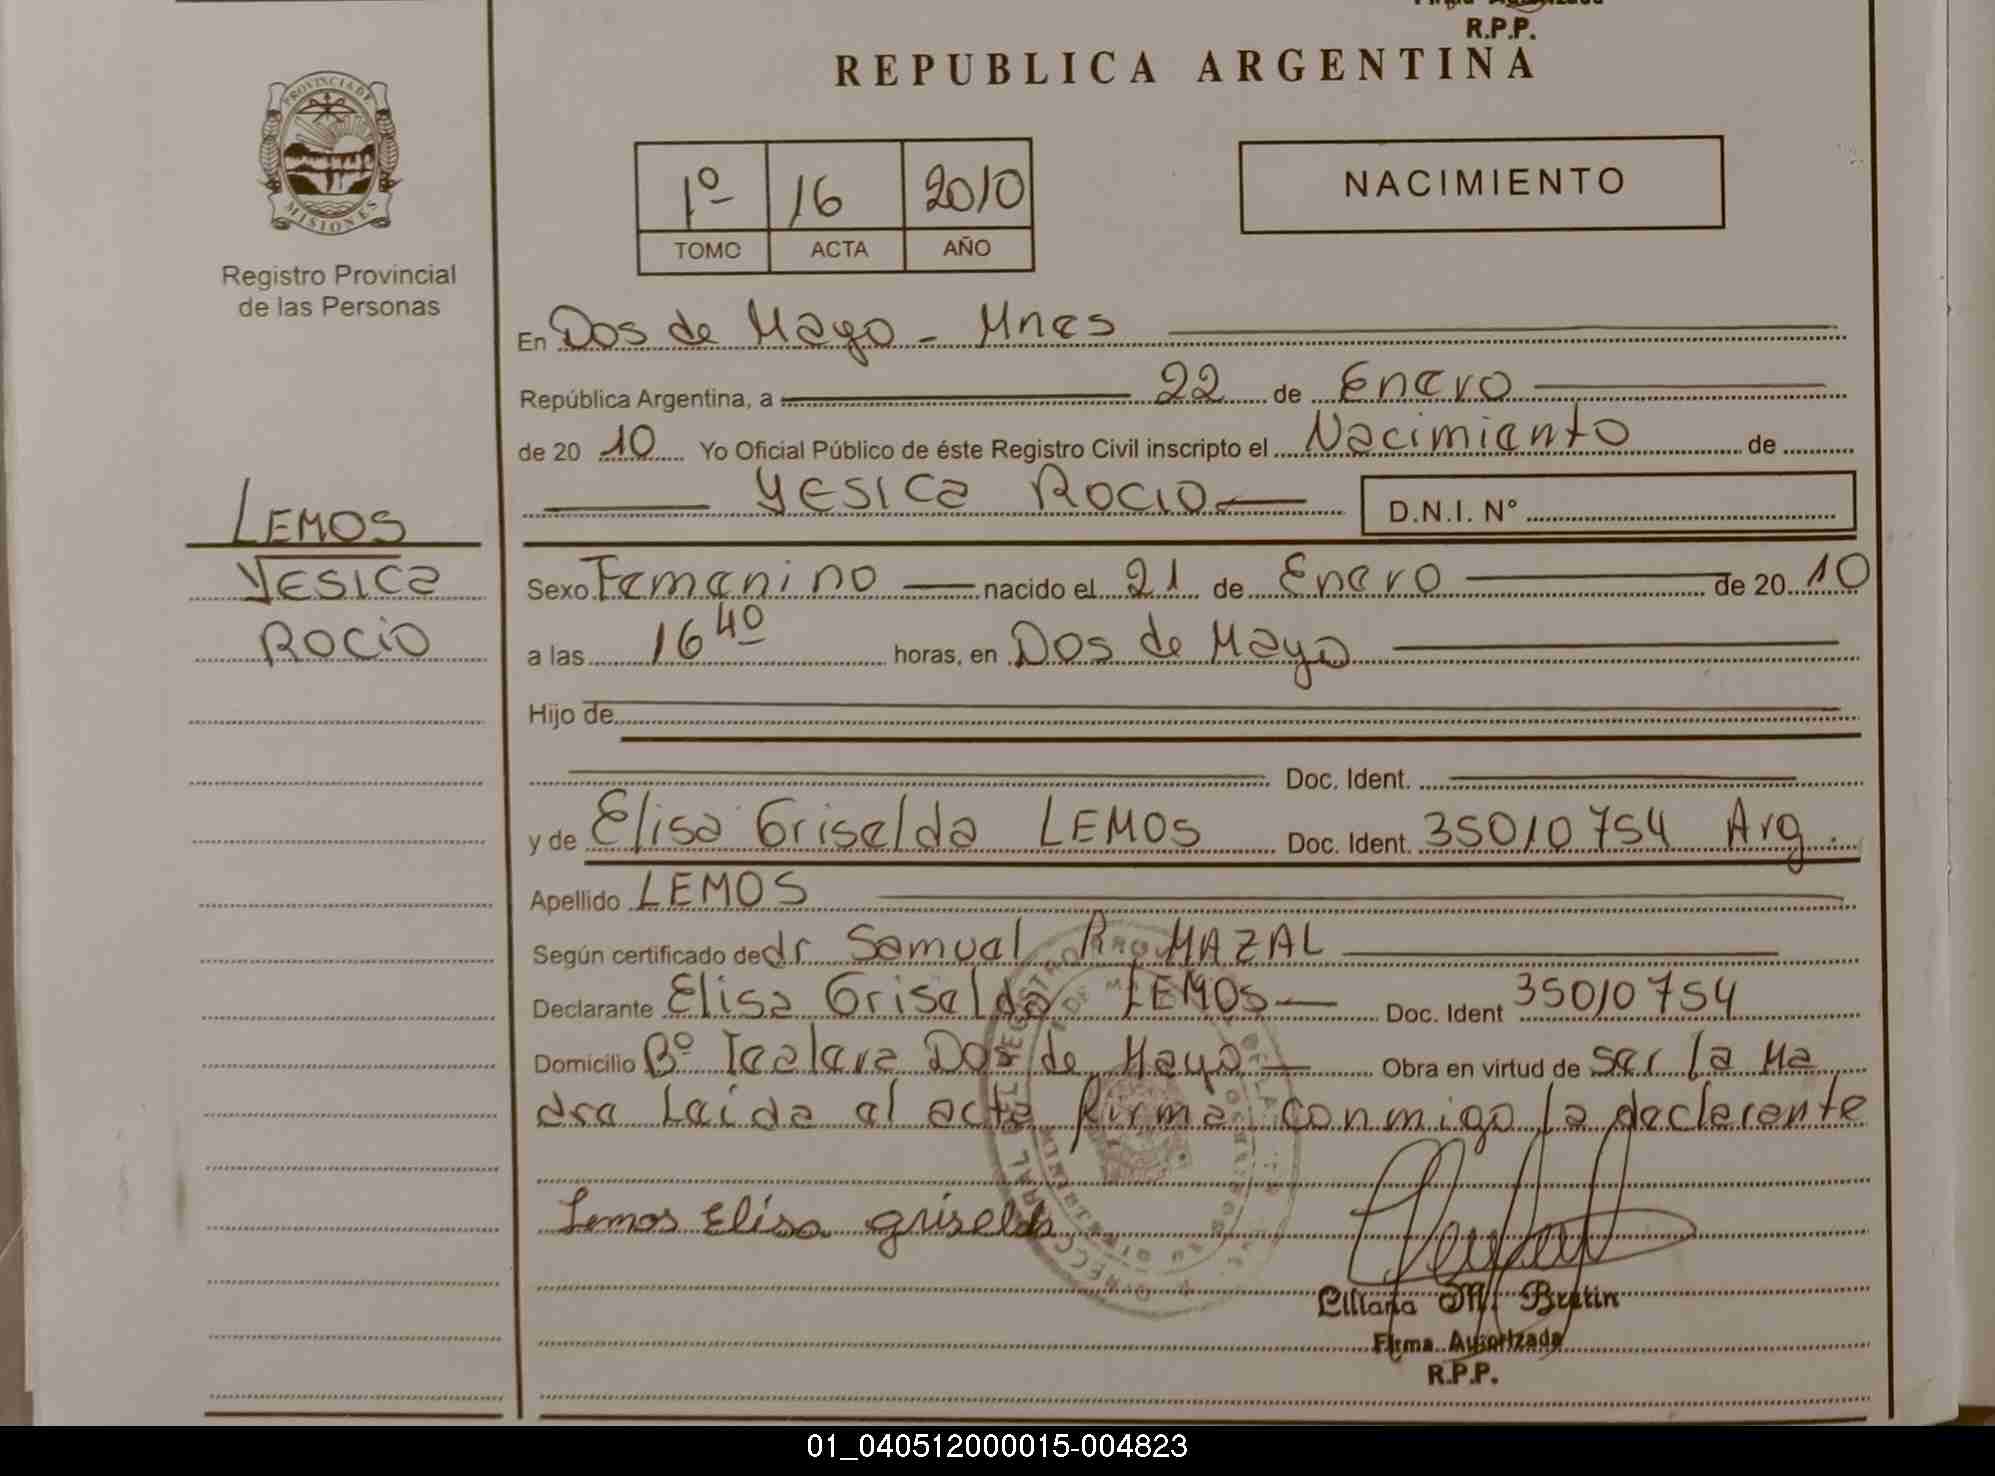 R.P.P.
REPUBLICA ARGENTINA
PROVINCIA DE
MISIONES
Registro Provincial
de las Personas
1º 16 2010
TOMO ACTA AÑO
NACIMIENTO
En Dos de Mayo - Mnes
República Argentina, a 22 de Enero
de 20 10 Yo Oficial Público de éste Registro Civil inscripto el Nacimiento de
YESICa ROCIO D.N.I. Nº
LEMOS
YESICa
ROCIO
Sexo Femenino nacido el 21 de Enero de 20 10
a las 16 40 horas, en Dos de Mayo
Hijo de
Doc. Ident.
y de Elisa Griselda LEMOS Doc. Ident. 35010754 Arg.
Apellido LEMOS
Según certificado de dr Samuel R. MAZAL
Declarante Elisa Griselda LEMOS Doc. Ident 35010754
Domicilio Bº Dos de Mayo Obra en virtud de ser la Ma
dre Leida el acta firma conmigo la declarante
Lemos Elisa griselda
Liliana M. Bretin
Firma Autorizada
R.P.P.
01_040512000015-004823